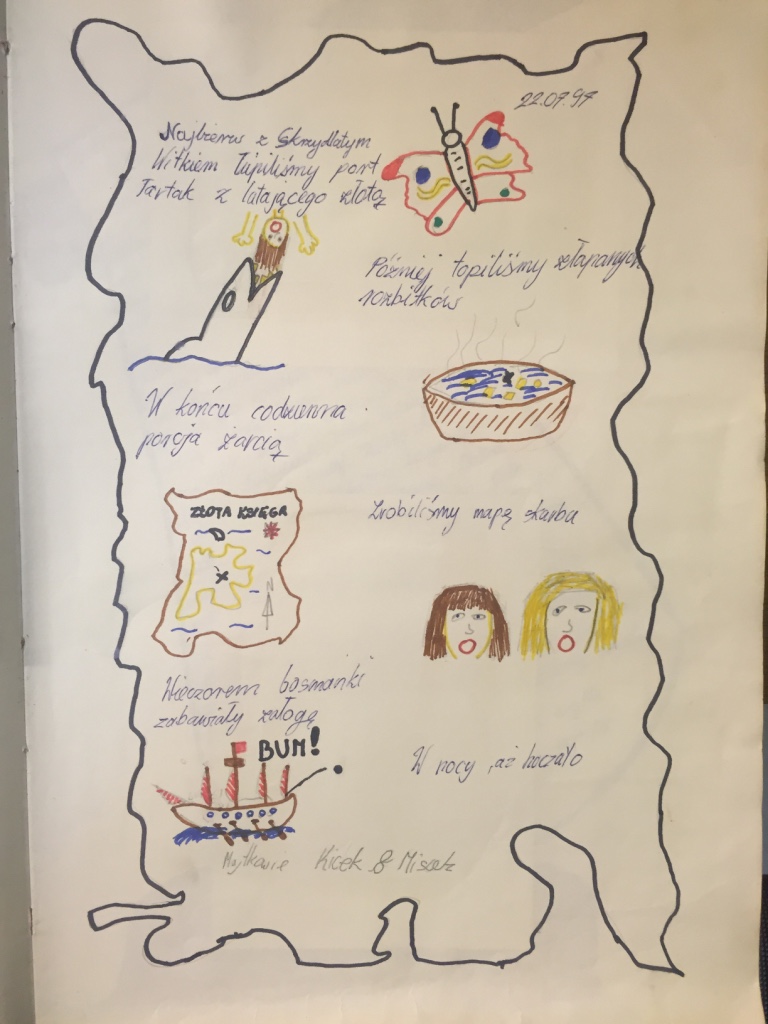 22.07.97
Najpierw z Skrzydlatym
Witkiem łupiliśmy port
Tartak z latającego złota
Później topiliśmy złapanych
rozbitków
W końcu codzienna
porcja żarcia
ZŁOTA KSIĘGA
N
Zrobiliśmy mapę skarba
Wieczorem bosmanki
zabawiały załogę
BUM!
W nocy, aż huczało
Majtkowie Kicek &